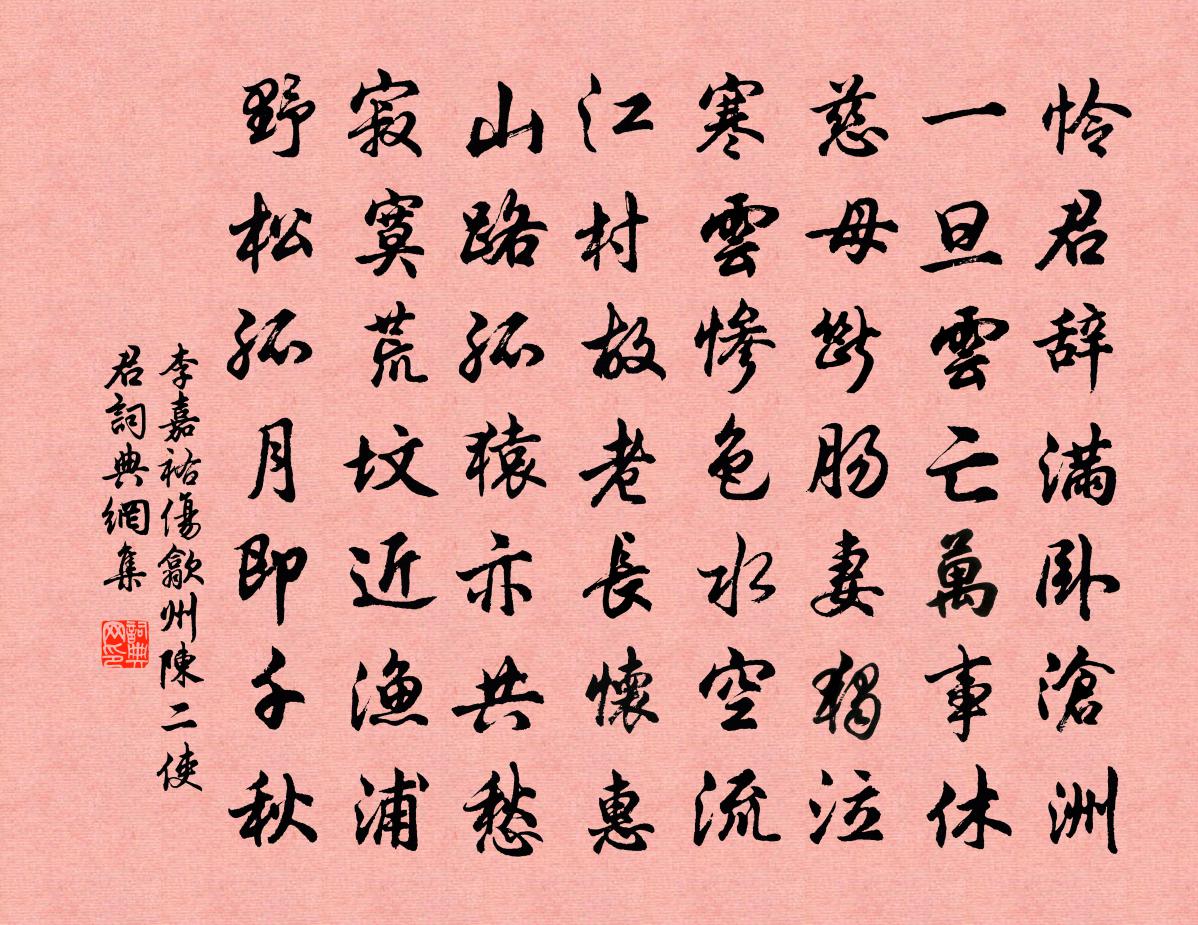 怜君辞满卧滄洲
一旦雲亡萬事休
慈母斷肠妻獨泣
寒雲慘色水空流
江村故老長懷惠
山路孤猿亦共愁
寂寞荒坟近漁浦
野松孤月即千秋
李嘉祐傷歙州陳二使
君詞典網集
詞典
网印